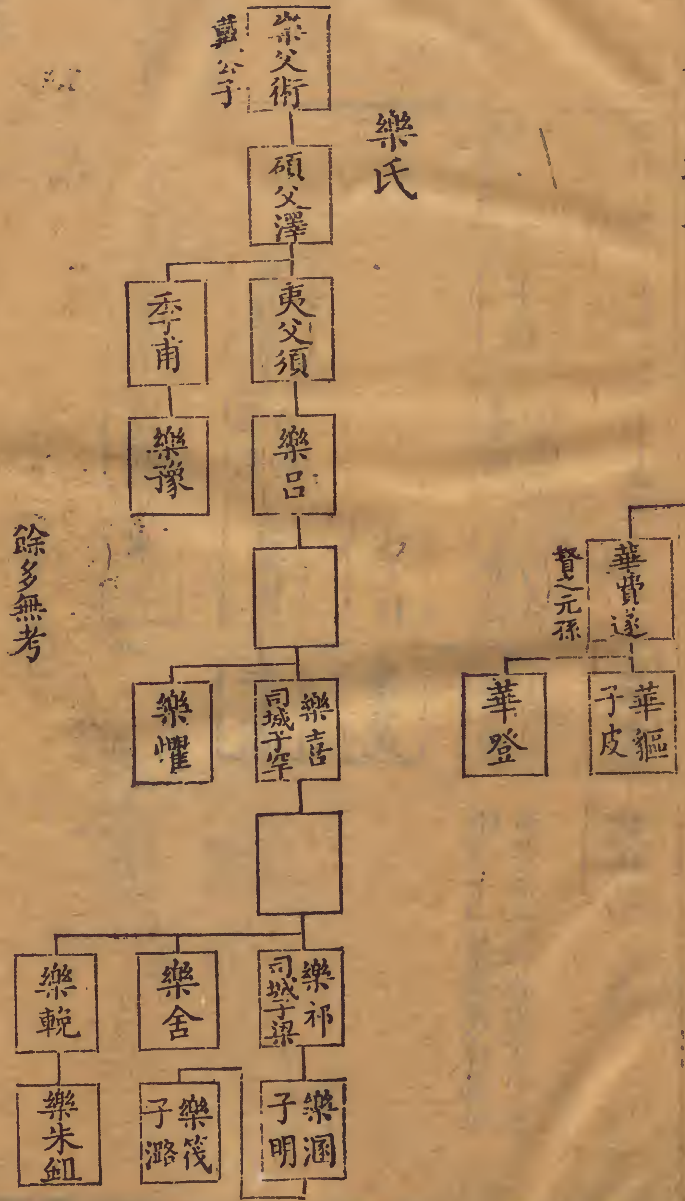 華費遂
督之元孫
華貙
子皮
華登
樂氏
樂父術
戴公子
碩父澤
夷父須
季甫
樂呂
樂豫
樂喜
司城子罕
樂懼
樂祁
司城子梁
樂舍
樂輓
樂溷
子明
樂茷
子潞
樂朱鉏
餘多無考